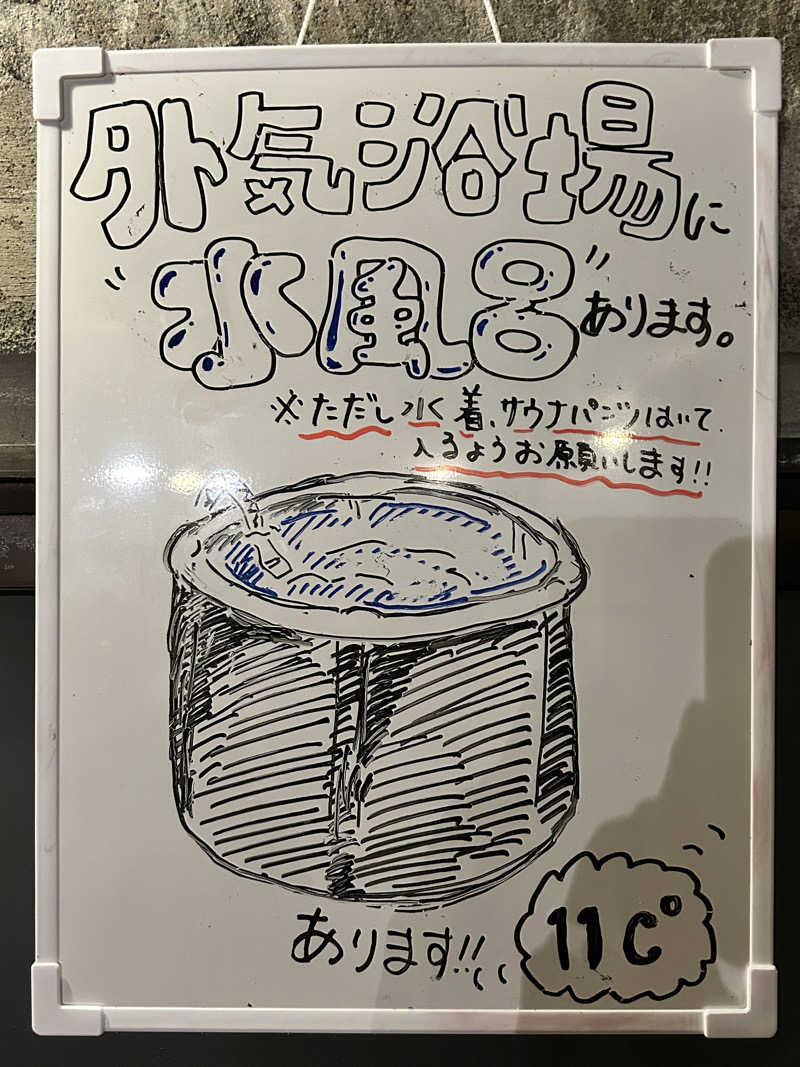 外気浴場に
"水風呂"あります。
※ただし水着、サウナパンツはいて、
入るようお願いします!!
あります!!
11C°